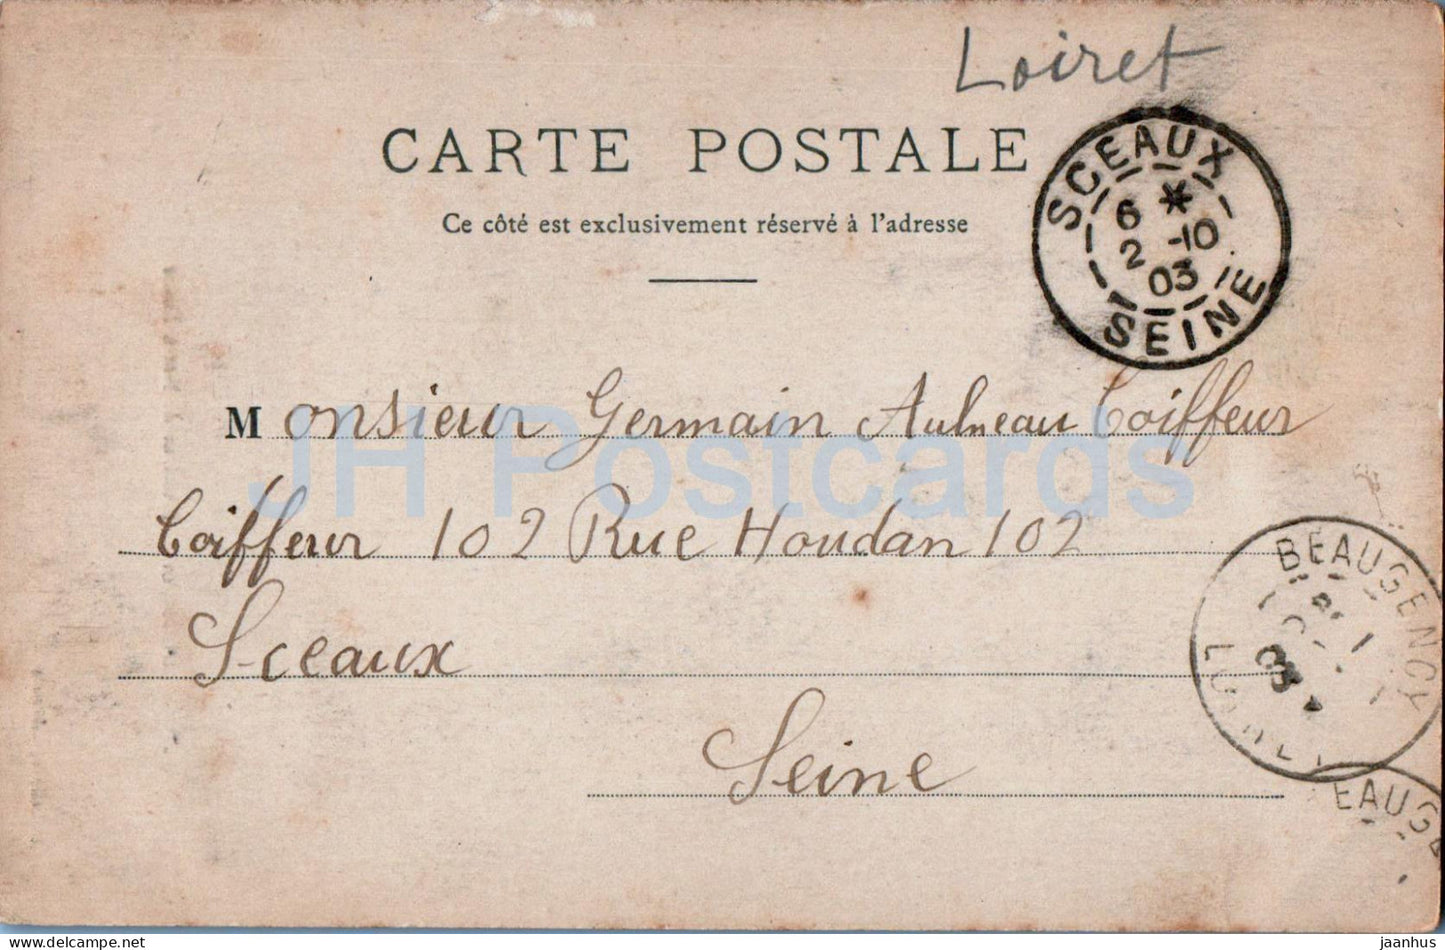 Loiret
CARTE POSTALE
Ce côté est exclusivement réservé à l'adresse
SCEAUX
6 *
2 -10
03
SEINE
Monsieur Germain Aulneau Coiffeur
Coiffeur 102 Rue Houdan 102
Sceaux
Seine
BEAUGENCY
03
EAUGE
JH Postcards
delcampe.net
jaanhus